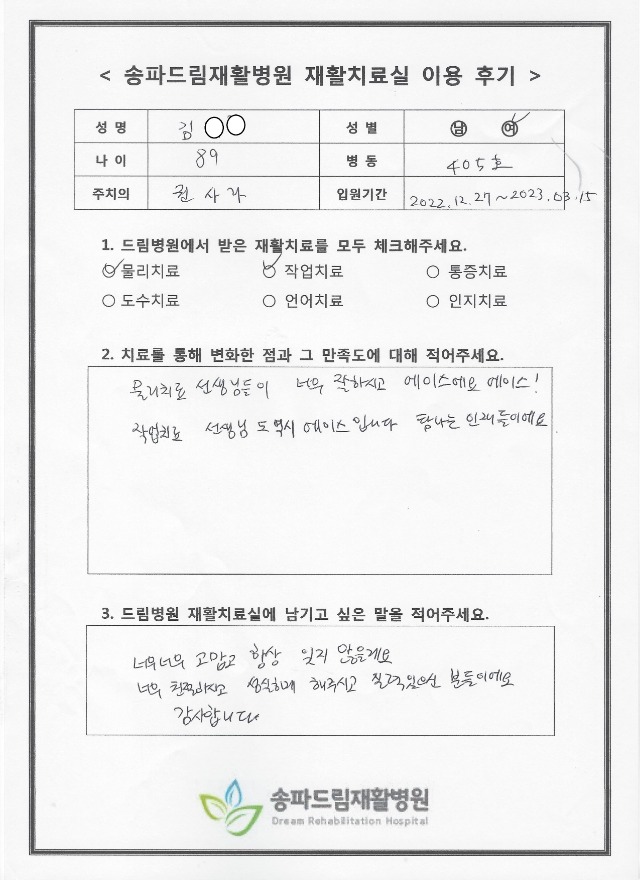 < 송파드림재활병원 재활치료실 이용 후기 >
성 명 김 ○○ 성 별 남 여
나 이 89 병 동 405호
주치의 권사라 입원기간 2022.12.27~2023.03.15
1. 드림병원에서 받은 재활치료를 모두 체크해주세요.
물리치료 작업치료 통증치료
도수치료 언어치료 인지치료
2. 치료를 통해 변화한 점과 그 만족도에 대해 적어주세요.
물리치료 선생님들이 너무 잘하시고 에이스에요 에이스!
작업치료 선생님 도 역시 에이스 입니다 탐나는 인재들이에요
3. 드림병원 재활치료실에 남기고 싶은 말을 적어주세요.
너무너무 고맙고 항상 잊지 않을게요
너무 친절하시고 성실하게 해주시고 실력있으신 분들이에요
감사합니다
송파드림재활병원
Dream Rehabilitation Hospital